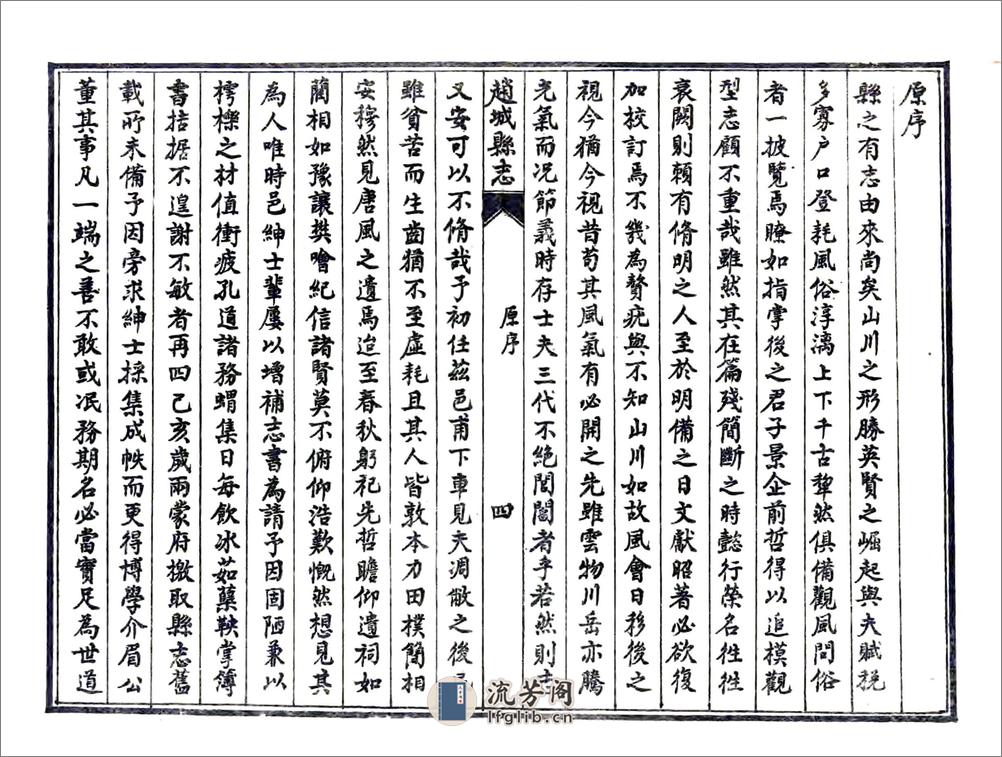 原序
縣之有志由來尚矣山川之形勝英賢之崛起與夫賦稅
多寡户口登耗風俗淳漓上下千古犂然俱備觀風問俗
者一披覧焉瞭如指掌後之君子景企前哲得以追模觀
型志顧不重哉雖然其在篇殘簡斷之時懿行榮名徃徃
衰闕則頼有脩明之人至於明備之日文獻昭著必欲復
加校訂焉不幾為贅疣與不知山川如故風會日移後之
視今猶今視昔苟其風氣有必開之先雖雲物川岳亦騰
光氣而况節義時存士夫三代不絕閭閻者乎若然則志
趙城縣志
原序
四
又安可以不脩哉予初任茲邑甫下車見夫凋敝之後
雖貧苦而生齒猶不至虛耗且其人皆敦本力田樸簡相
安穆然見唐風之遺焉迨至春秋躬祀先哲瞻仰遺祠如
藺相如豫讓樊噲紀信諸賢莫不俯仰浩歎慨然想見其
為人唯時邑紳士輩屢以增補志書為請予因固陋兼以
樗櫟之材值衝疲孔道諸務蝟集日每飲冰茹蘗鞅掌簿
書拮据不遑謝不敏者再四己亥歲兩蒙府檄取縣志舊
載所未備予因旁求紳士採集成帙而更得博學介眉公
董其事凡一端之善不敢或泯務期名必當實足為世道
流芳阁
lfglib.cn